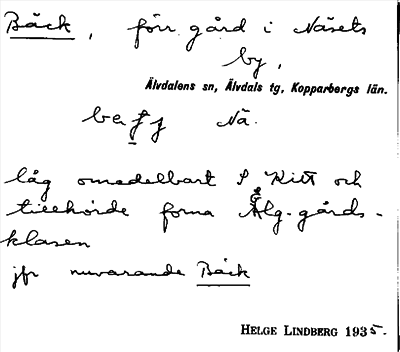 Bäck, förr. gård i Näsets
by,
Älvdalens sn, Älvdals tg, Kopparbergs län.
Nä.
låg omedelbart S Kitt och
tillhörde forna Älg-gårds-
klasen
jfr nuvarande Bäck
HELGE LINDBERG 1935.